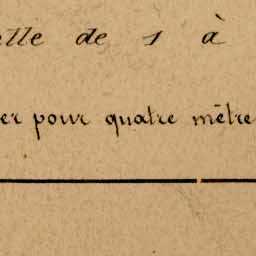 elle de 1 à
er pour quatre mètre